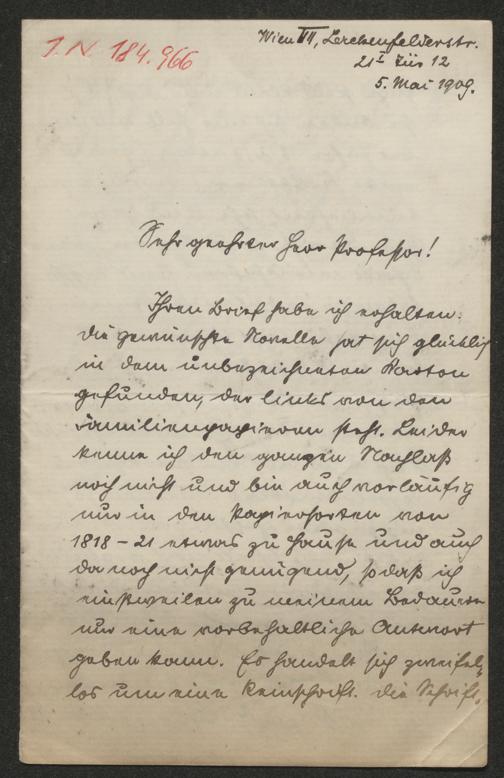 I. N. 184.966
Wien VII, Lerchenfelderstr.
21 I Tür 12
5. Mai 1909.
Sehr geehrter Herr Professor!
Ihren Brief habe ich erhalten.
Die gewünschte Novelle hat sich glücklich
in dem unbezeichneten Karton
gefunden, der links von den
Familienpapieren steht. Leider
kenne ich den ganzen Nachlaß
noch nicht und bin auch vorläufig
nur in den Papiersorten von
1818-21 etwas zu Hause und auch
da noch nicht genügend, sodaß ich
einstweilen zu meinem Bedauern
nur eine vorbehaltliche Antwort
geben kann. Es handelt sich zweifel-
los um eine Reinschrift. Die Schrift,